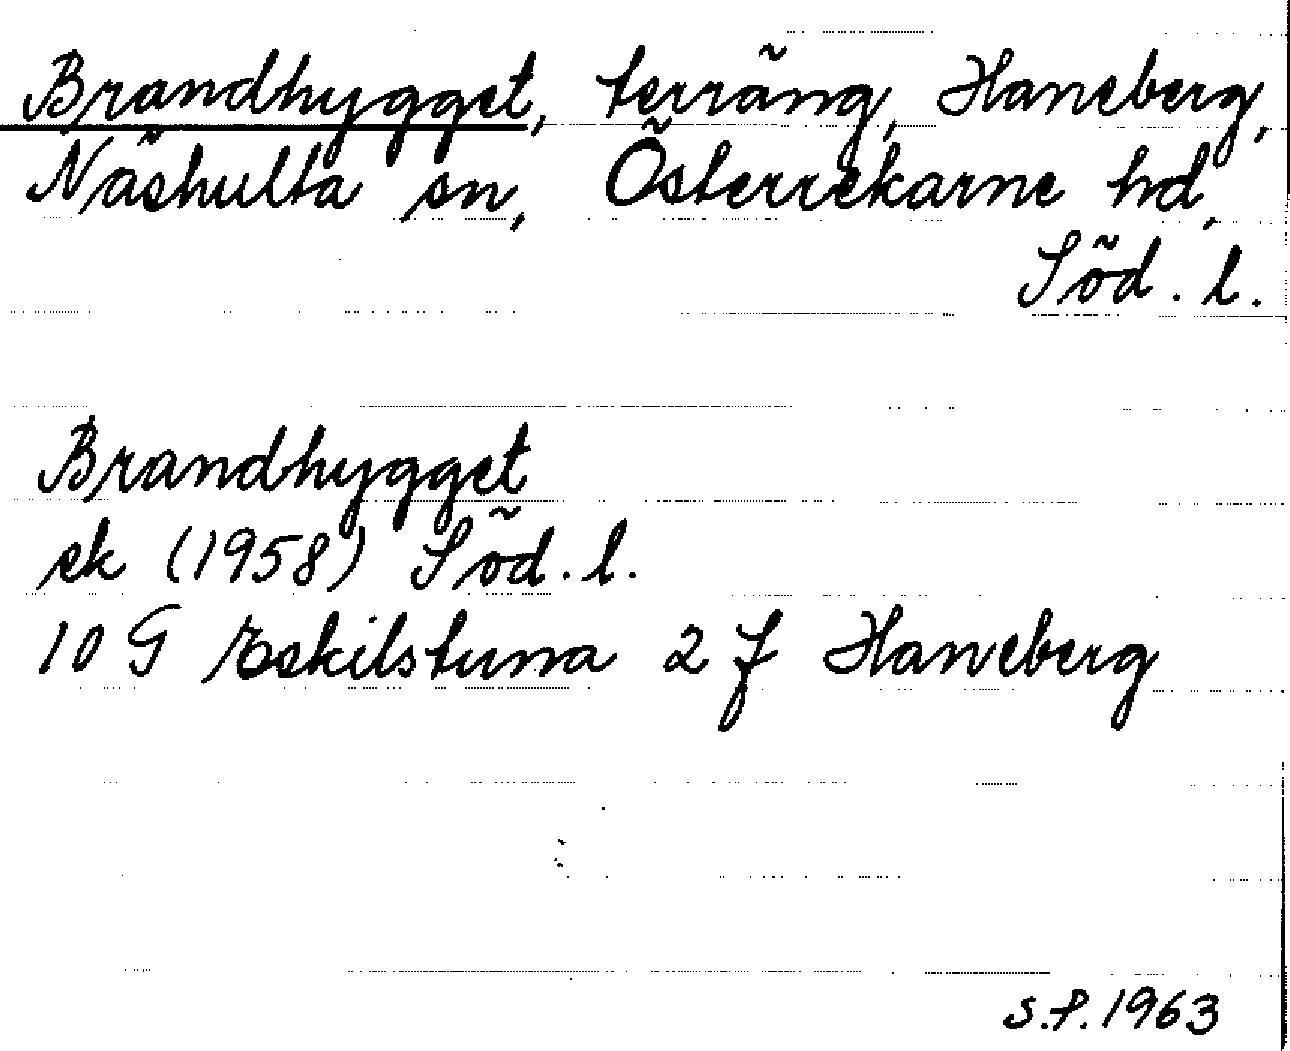 Brandhygget, terräng, Haneberg,
Näshulta sn, Österrekarne hd,
Söd. l.
Brandhygget
ek (1958) Söd. l.
10 G Eskilstuna 2 f Haneberg
S.P. 1963